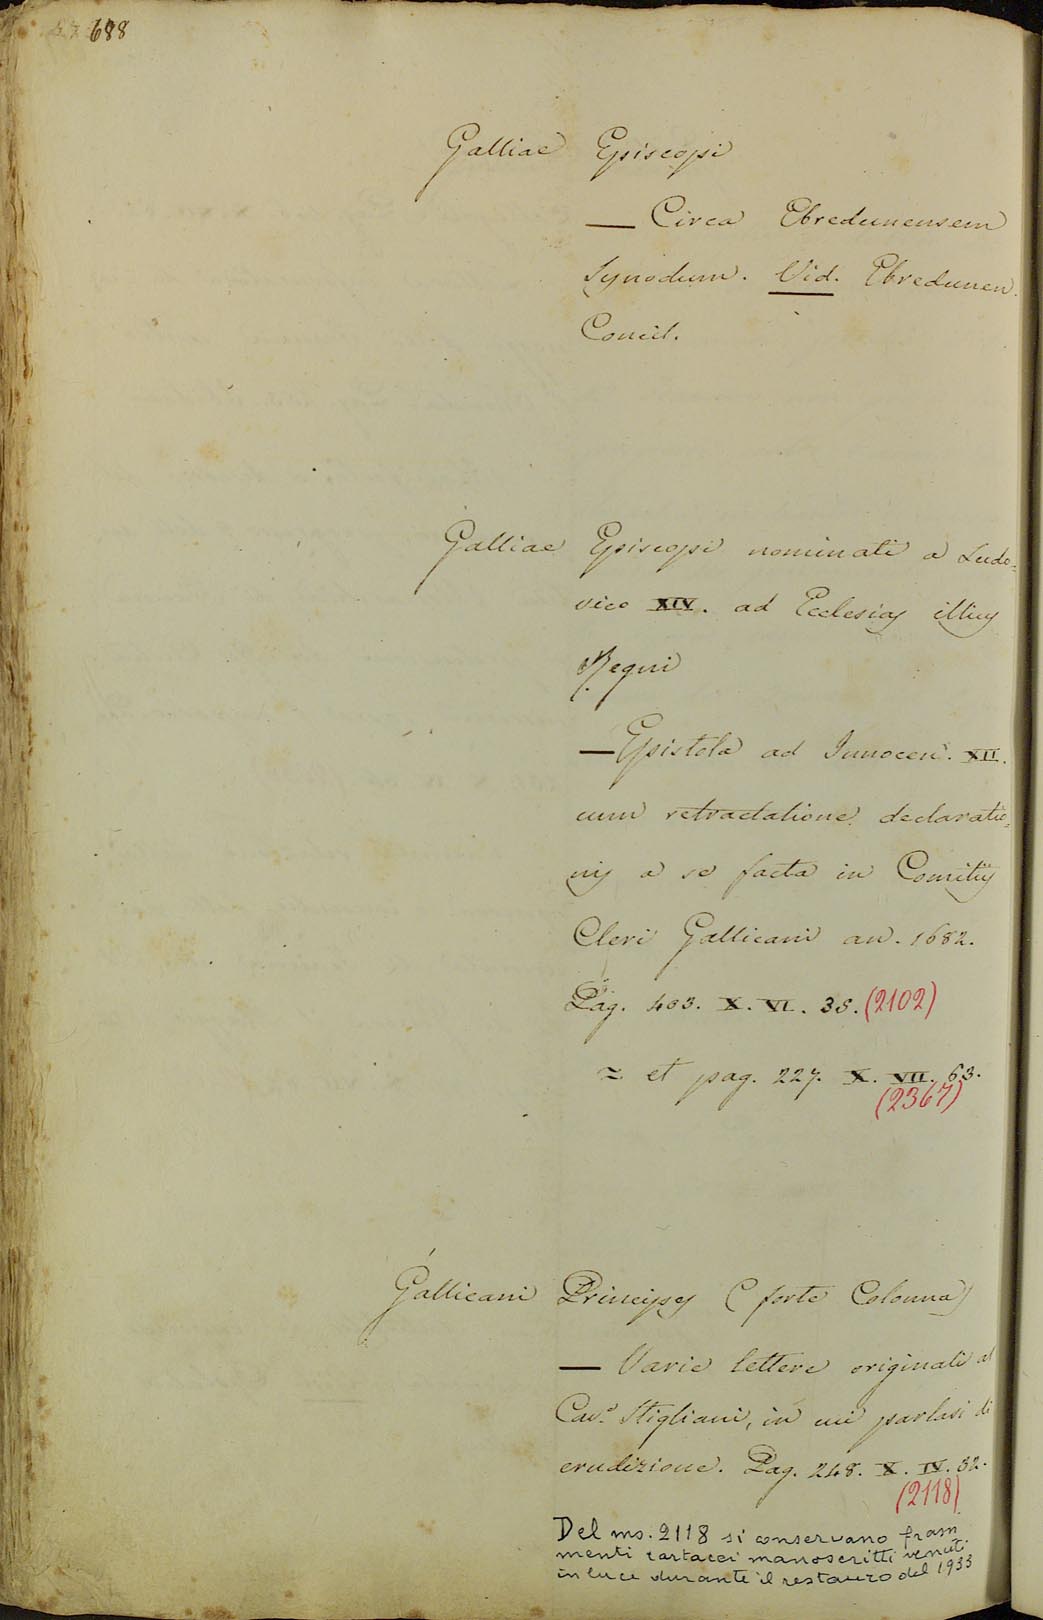 688
Galliae Episcopi
— Circa Ebredunensem
Synodum. Vid. Ebredunen.
Concil.
Galliae Episcopi nominati a Ludo=
vico XIV. ad Ecclesias illius
Regni
— Epistola ad Innocen. XII.
cum retractatione declaratio=
nis a se facta in Comitiis
Cleri Gallicani an. 1682.
Pag. 403. X. VI. 38. (2102)
= et pag. 227. X. VII. 63.
(2367)
Gallicani Principes (forte Colonna)
— Varie lettere originali al
Cav.e Stigliani, in cui parlasi di
erudizione. Pag. 248. X. IV. 32.
(2118)
Del ms. 2118 si conservano fram
menti cartacei manoscritti venuti
in luce durante il restauro del 1933